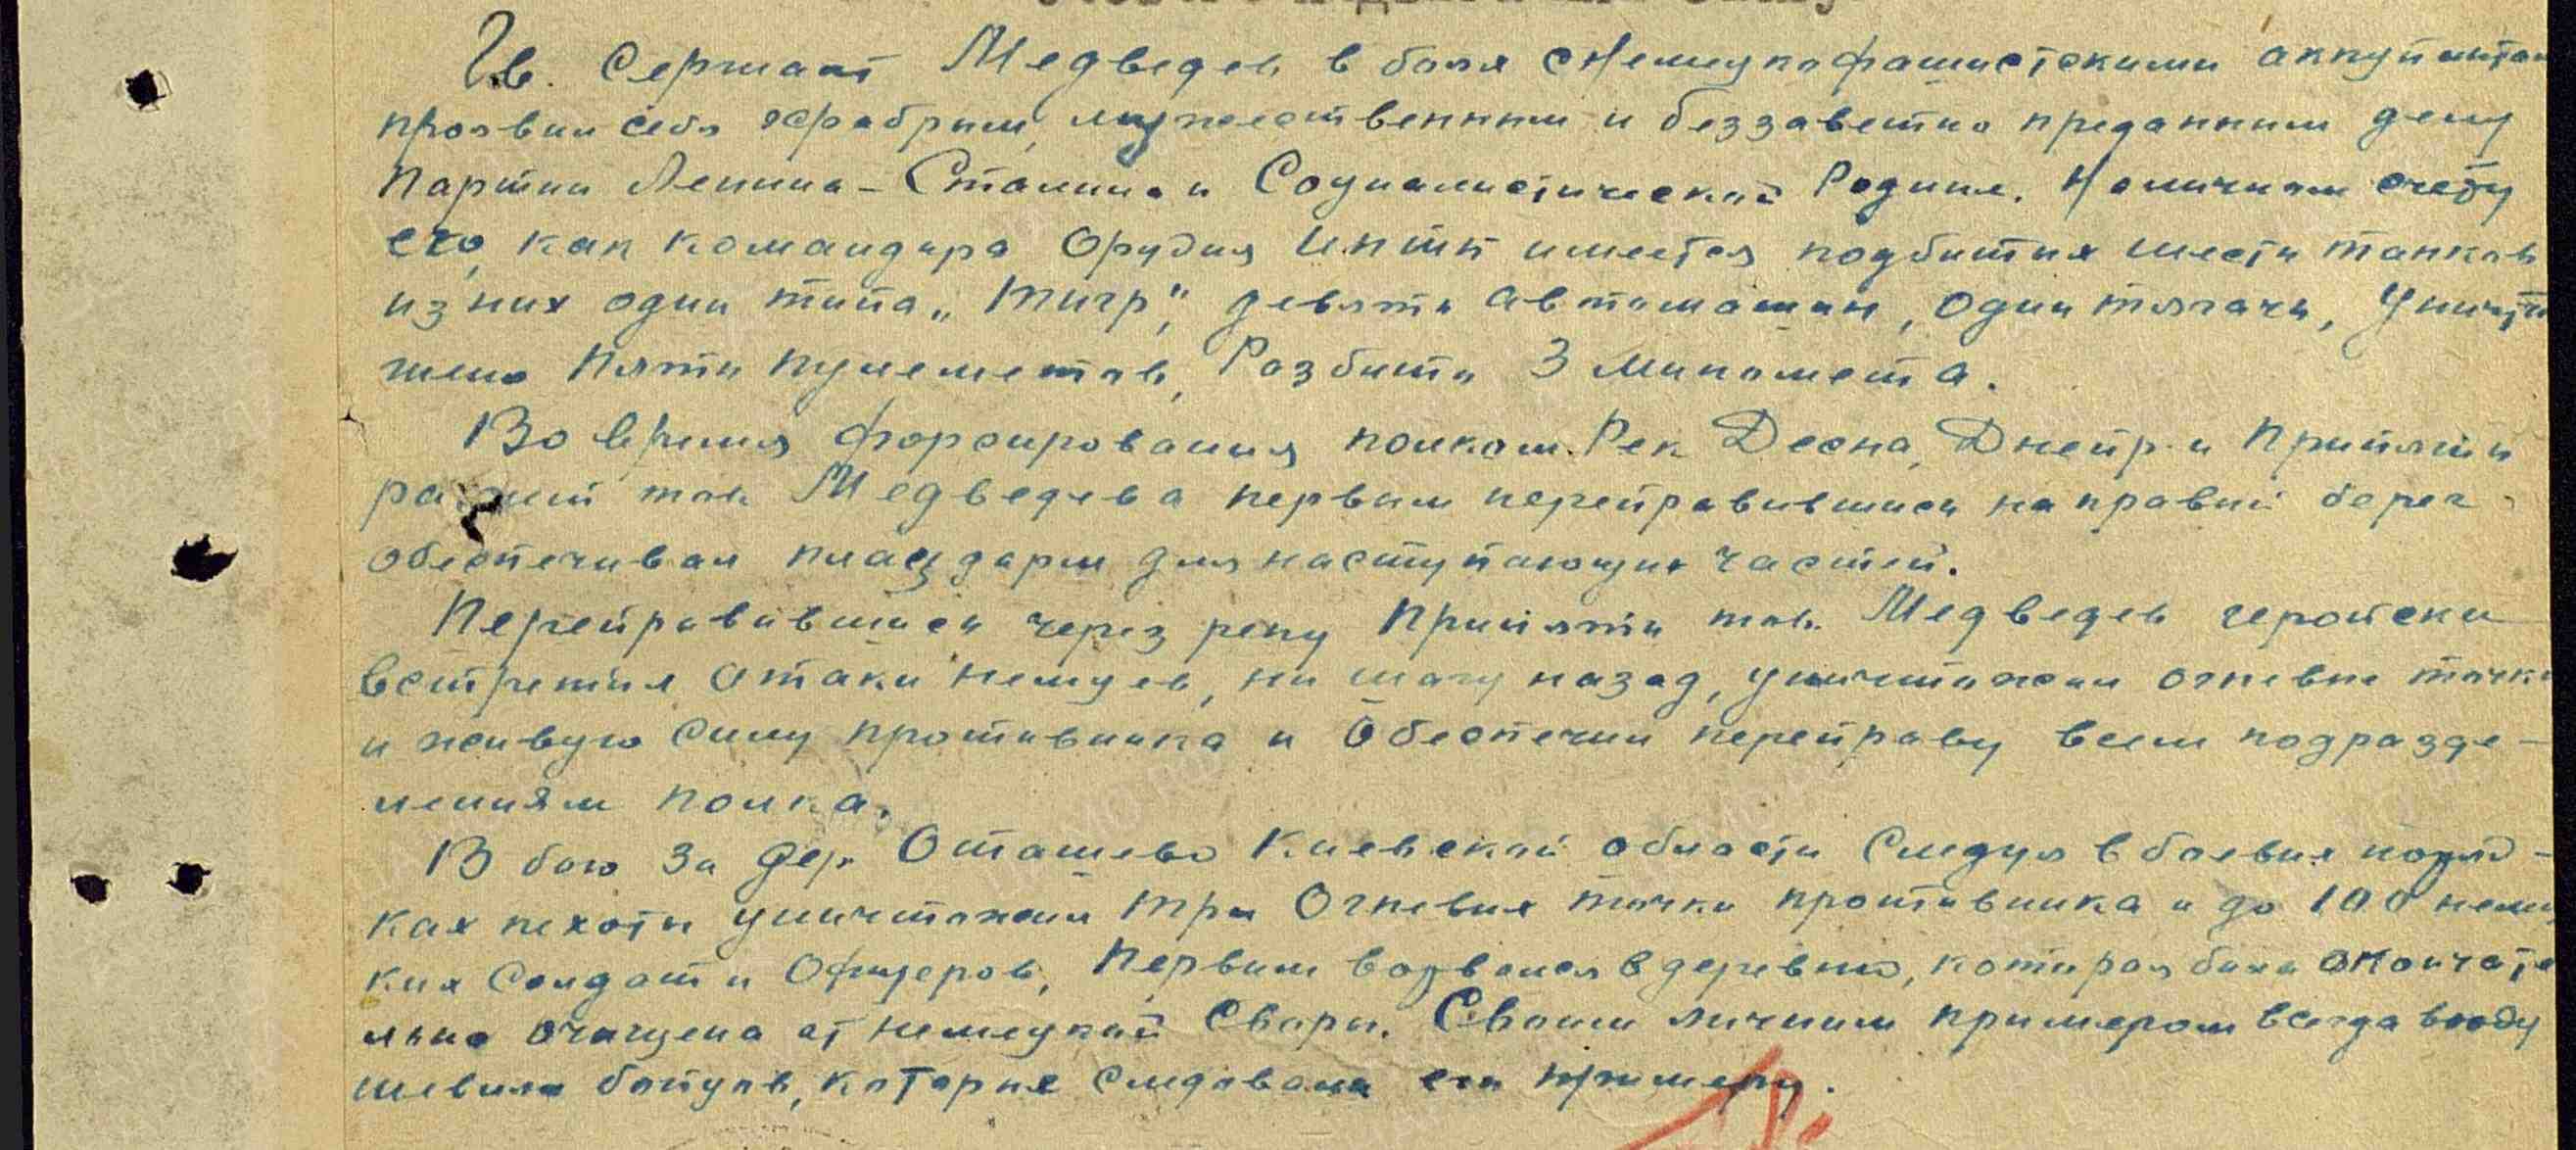 Гв. Сержант Медведев в боях с Немецкофашистскими аккупантам
проявил себя храбрым, мужественным и беззаветно преданным делу
Партии Ленина - Сталина и Социалистической Родине. На личном счету
его, как командира Орудия ИПТП имеется подбитых шесть танков
из них один типа „Тигр", девять Автомашин, один тягачь, Уничто
жено Пять пулеметов, Разбито 3 миномета.
Во время форсирования полком Рек Десна, Днепр и Припять
расчет тов. Медведева первым переправившись на правый берег
обеспечивал плацдарм для наступающих частей.
Переправившись через реку Припять тов. Медведев геройски
встретил Атаки немцев, ни шагу назад, уничтожал огневые точки
и живую силу противника и Обеспечил переправу всем подразде-
лениям полка.
В бою за дер. Оташево Киевской области Следуя в боевых поряд-
ках пехоты уничтожил три Огневых точки противника и до 100 немец
ких Солдат и Офицеров, Первым ворвался в деревню, которая была окончате
льно очищена от немецкой Своры. Своим личным примером всегда вооду
шевлял бойцов, которые следовали его примеру.